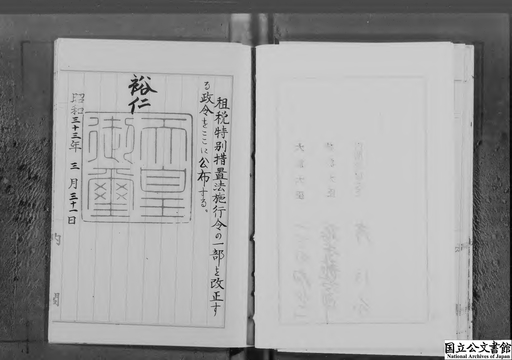 租税特別措置法施行令の一部を改正す
る政令をここに公布する。
裕仁
天皇
御璽
昭和三十三年三月三十一日
内閣
国立公文書館
National Archives of Japan